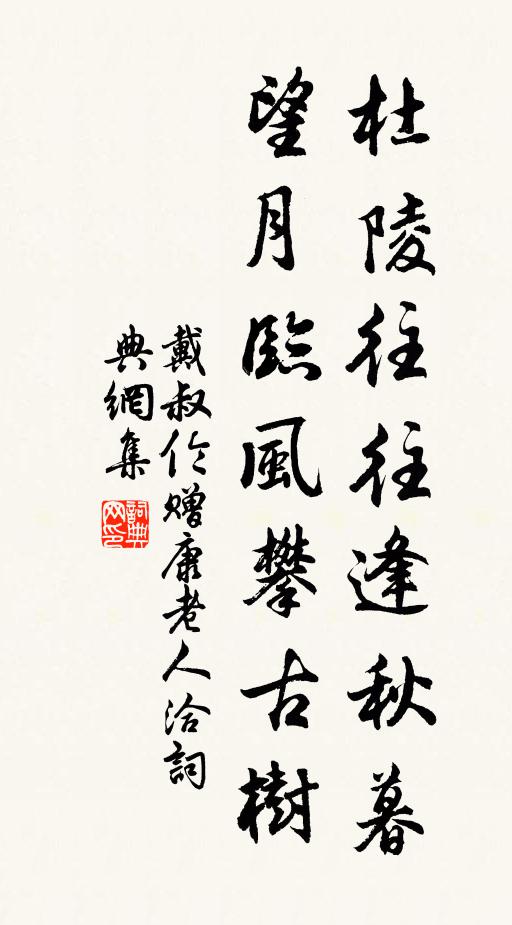 杜陵往往逢秋暮
望月臨風攀古樹
戴叔伦赠康老人洽詞
典網集
詞典网印